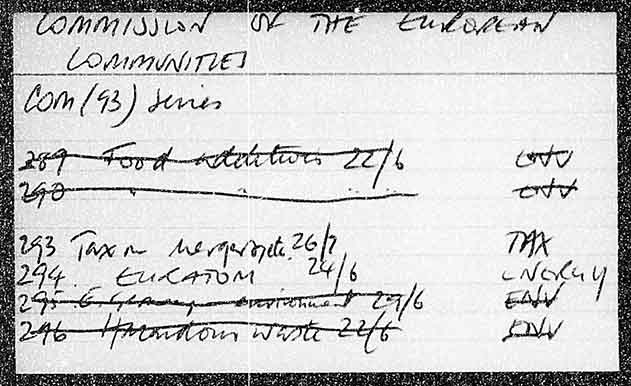 COMMISSION OF THE EUROPEAN
COMMUNITIES
COM(93) series
289 Food additives 22/6 ENV
290 ENV
293 Tax on mergers etc. 26/7 TAX
294. EURATOM 24/6 ENERGY
295 environment 29/6 ENV
296 Hazardous waste 22/6 ENV